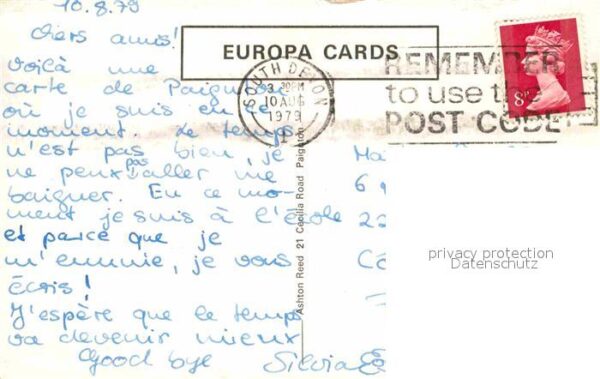 10.8.79
Chers amis!
Voilà une
carte de Paignton
où je suis en ce
moment. Le temps
n'est pas bien, je
ne peux pas aller me
baigner. En ce mo-
ment je suis à l'école
et parce que je
m'ennuie, je vous
écris!
J'espère que le temps
va devenir mieux
Good bye Silvia
EUROPA CARDS
SOUTH DEVON
3.30PM
10 AUG
1979
REMEMBER
to use the
POST CODE
8P
Ashton Reed 21 Cecilia Road Paignton
6
22
privacy protection
Datenschutz